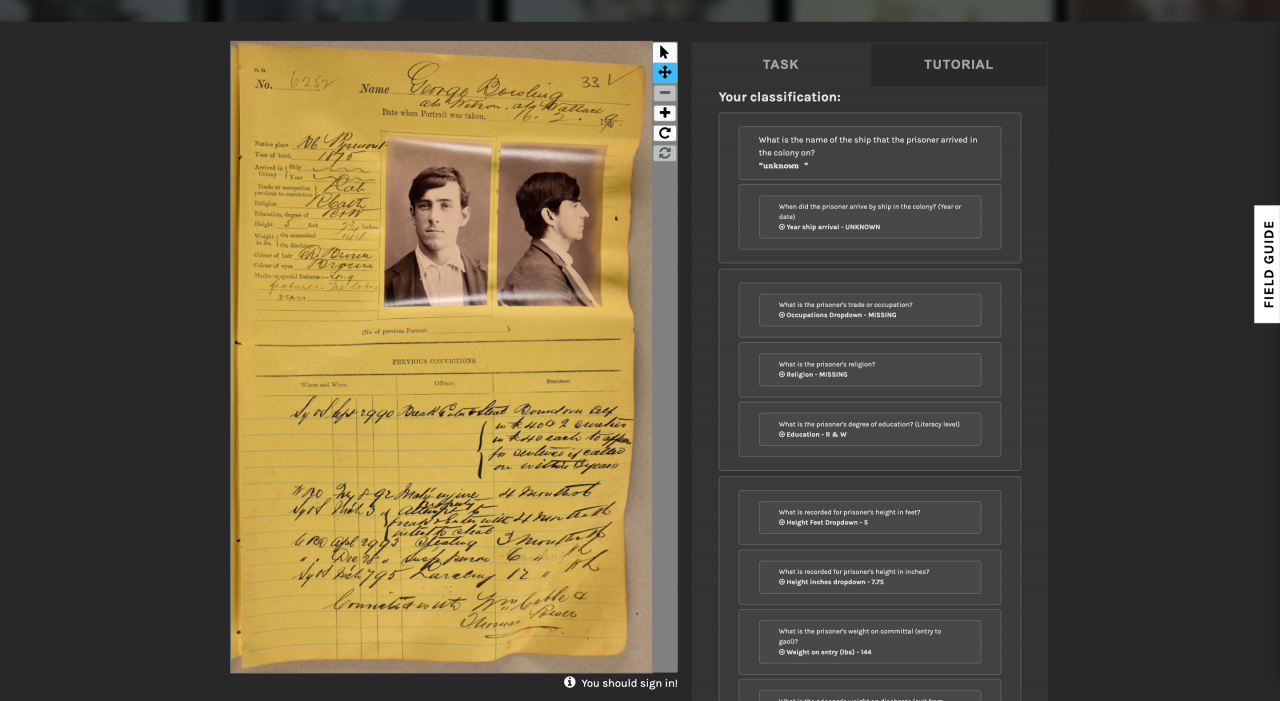 No. 6262
Name George Bowling
33
als Wilson. als Wallace
Date when Portrait was taken, 16. 2. 189
Native place
Year of birth 1875
Arrived in Colony { Ship
Year
Trade or occupation previous to conviction } Lab
Religion R Cath
Education, degree of R & W
Height 5 feet 7¾ inches
Weight in lbs. { On committed 144
On discharge
Colour of hair Dk Brown
Colour of eyes Brown
Marks or special features:— Long
features. No lobes
ears
(No of previous Portrait ).
PREVIOUS CONVICTIONS.
Where and When.
Offence.
Sentence.
Sy QS Sept 29 90
Break Enter & Steal
Bound over Self
in £40 & 2 sureties
in £40 each to appear
for sentence if called
on within 3 years
July 8 92
injure
property
4 months
Sy QS Mch 3 "
Attempt to
break & enter with
intent to steal
4 Months HL
Apl 29 93
Stealing
3 Months HL
" Dec 28 "
Susp person
6 " HL
Sy QS Mch 7 95
Larceny
12 " HL
Convicted with Wm Cable &
Thomas Power
You should sign in!
TASK
TUTORIAL
Your classification:
What is the name of the ship that the prisoner arrived in
the colony on?
"unknown "
When did the prisoner arrive by ship in the colony? (Year or
date)
Year ship arrival - UNKNOWN
What is the prisoner's trade or occupation?
Occupations Dropdown - MISSING
What is the prisoner's religion?
Religion - MISSING
What is the prisoner's degree of education? (Literacy level)
Education - R & W
What is recorded for prisoner's height in feet?
Height Feet Dropdown - 5
What is recorded for prisoner's height in inches?
Height inches dropdown - 7.75
What is the prisoner's weight on committal (entry to
gaol)?
Weight on entry (lbs) - 144
FIELD GUIDE